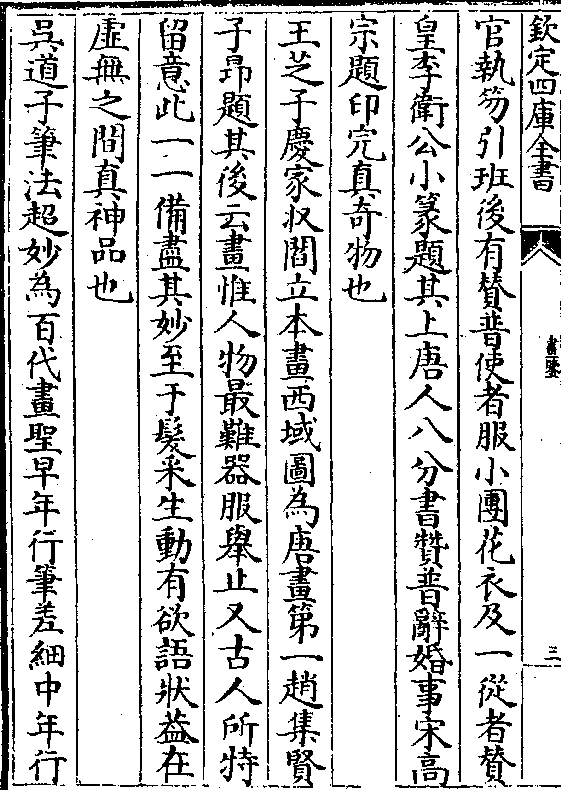 欽定四庫全書
畫鑒
三
官執笏引班後有賛普使者服小團花衣及一從者賛
皇李衛公小篆題其上唐人八分書賛普辭婚事宋高
宗題印完真奇物也
王芝子慶家収閻立本畫西域圖為唐畫第一趙集賢
子昻題其後云畫惟人物最難器服舉止又古人所特
留意此一一備盡其妙至于髮采生動有欲語狀葢在
虛無之間真神品也
吳道子筆法超妙為百代畫聖早年行筆差細中年行